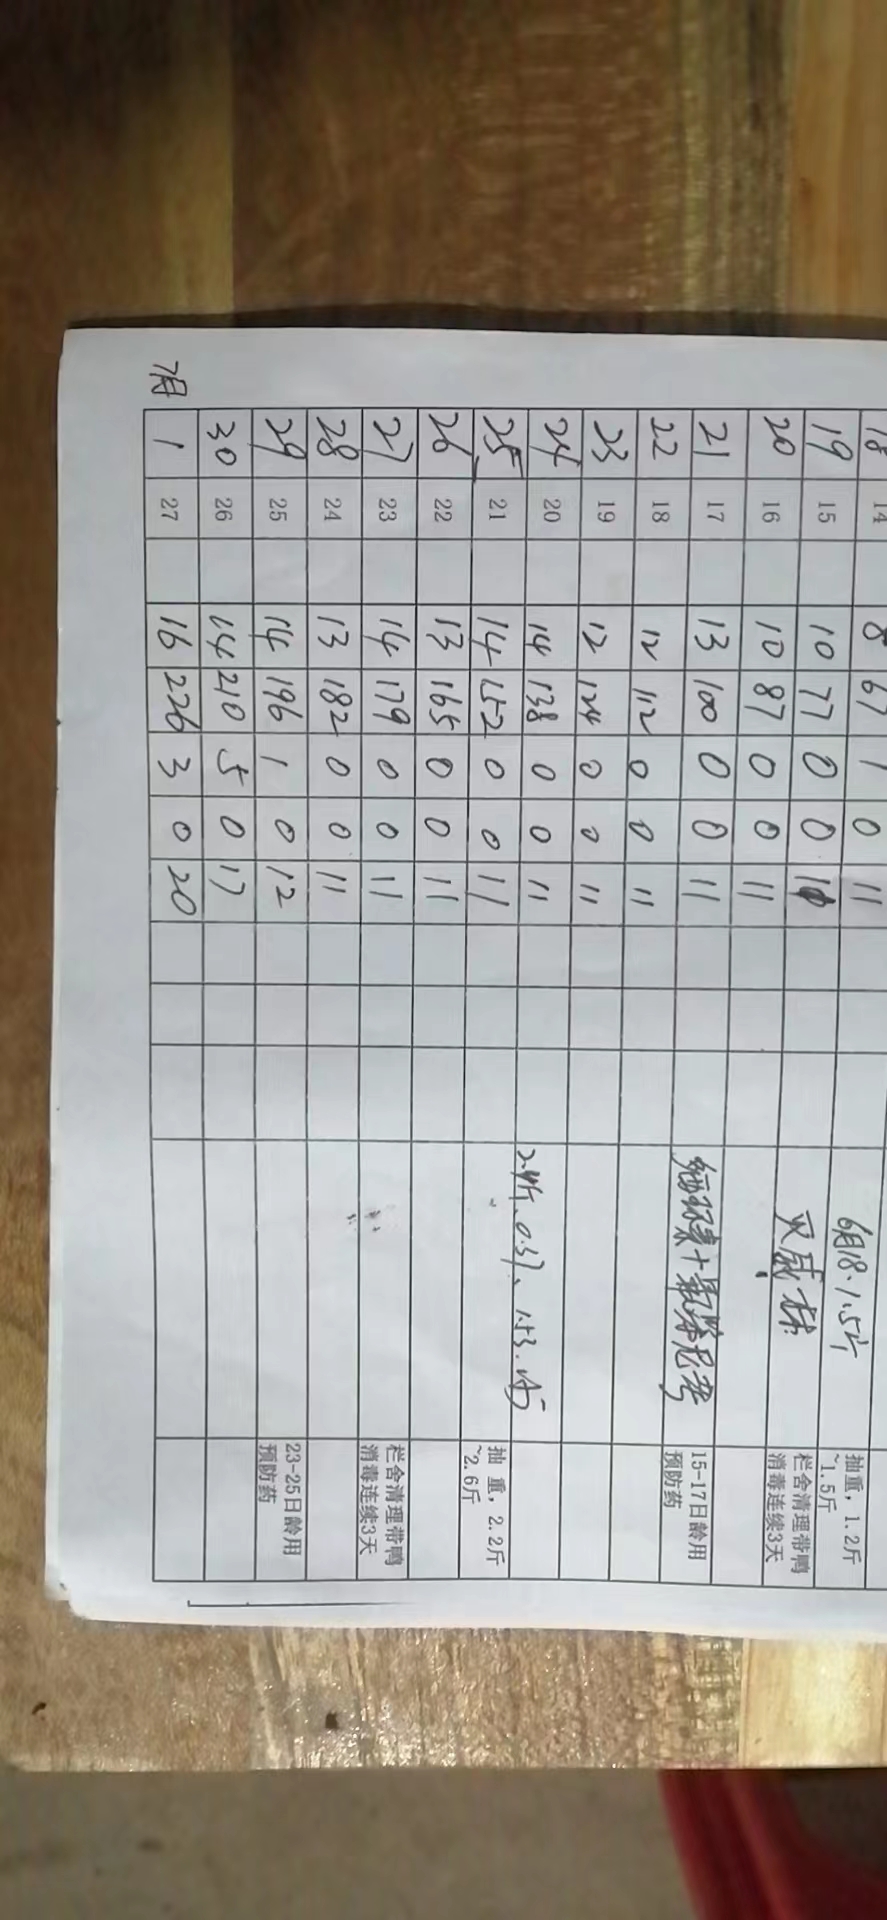 18 14 8 67 1 0 11 6月18.1.5斤 抽重，1.2斤~1.5斤
19 15 10 77 0 0 11
20 16 10 87 0 0 11 栏舍清理带鸭消毒连续3天
21 17 13 100 0 0 11 15-17日龄用预防药
22 18 12 112 0 0 11
23 19 12 124 0 0 11
24 20 14 138 0 0 11 2.4斤、0.37、1.53.
25 21 14 152 0 0 11 抽重，2.2斤~2.6斤
26 22 13 165 0 0 11
27 23 14 179 0 0 11 栏舍清理带鸭消毒连续3天
28 24 13 182 0 0 11
29 25 14 196 1 0 12 23-25日龄用预防药
30 26 14 210 5 0 17
7月 1 27 16 226 3 0 20